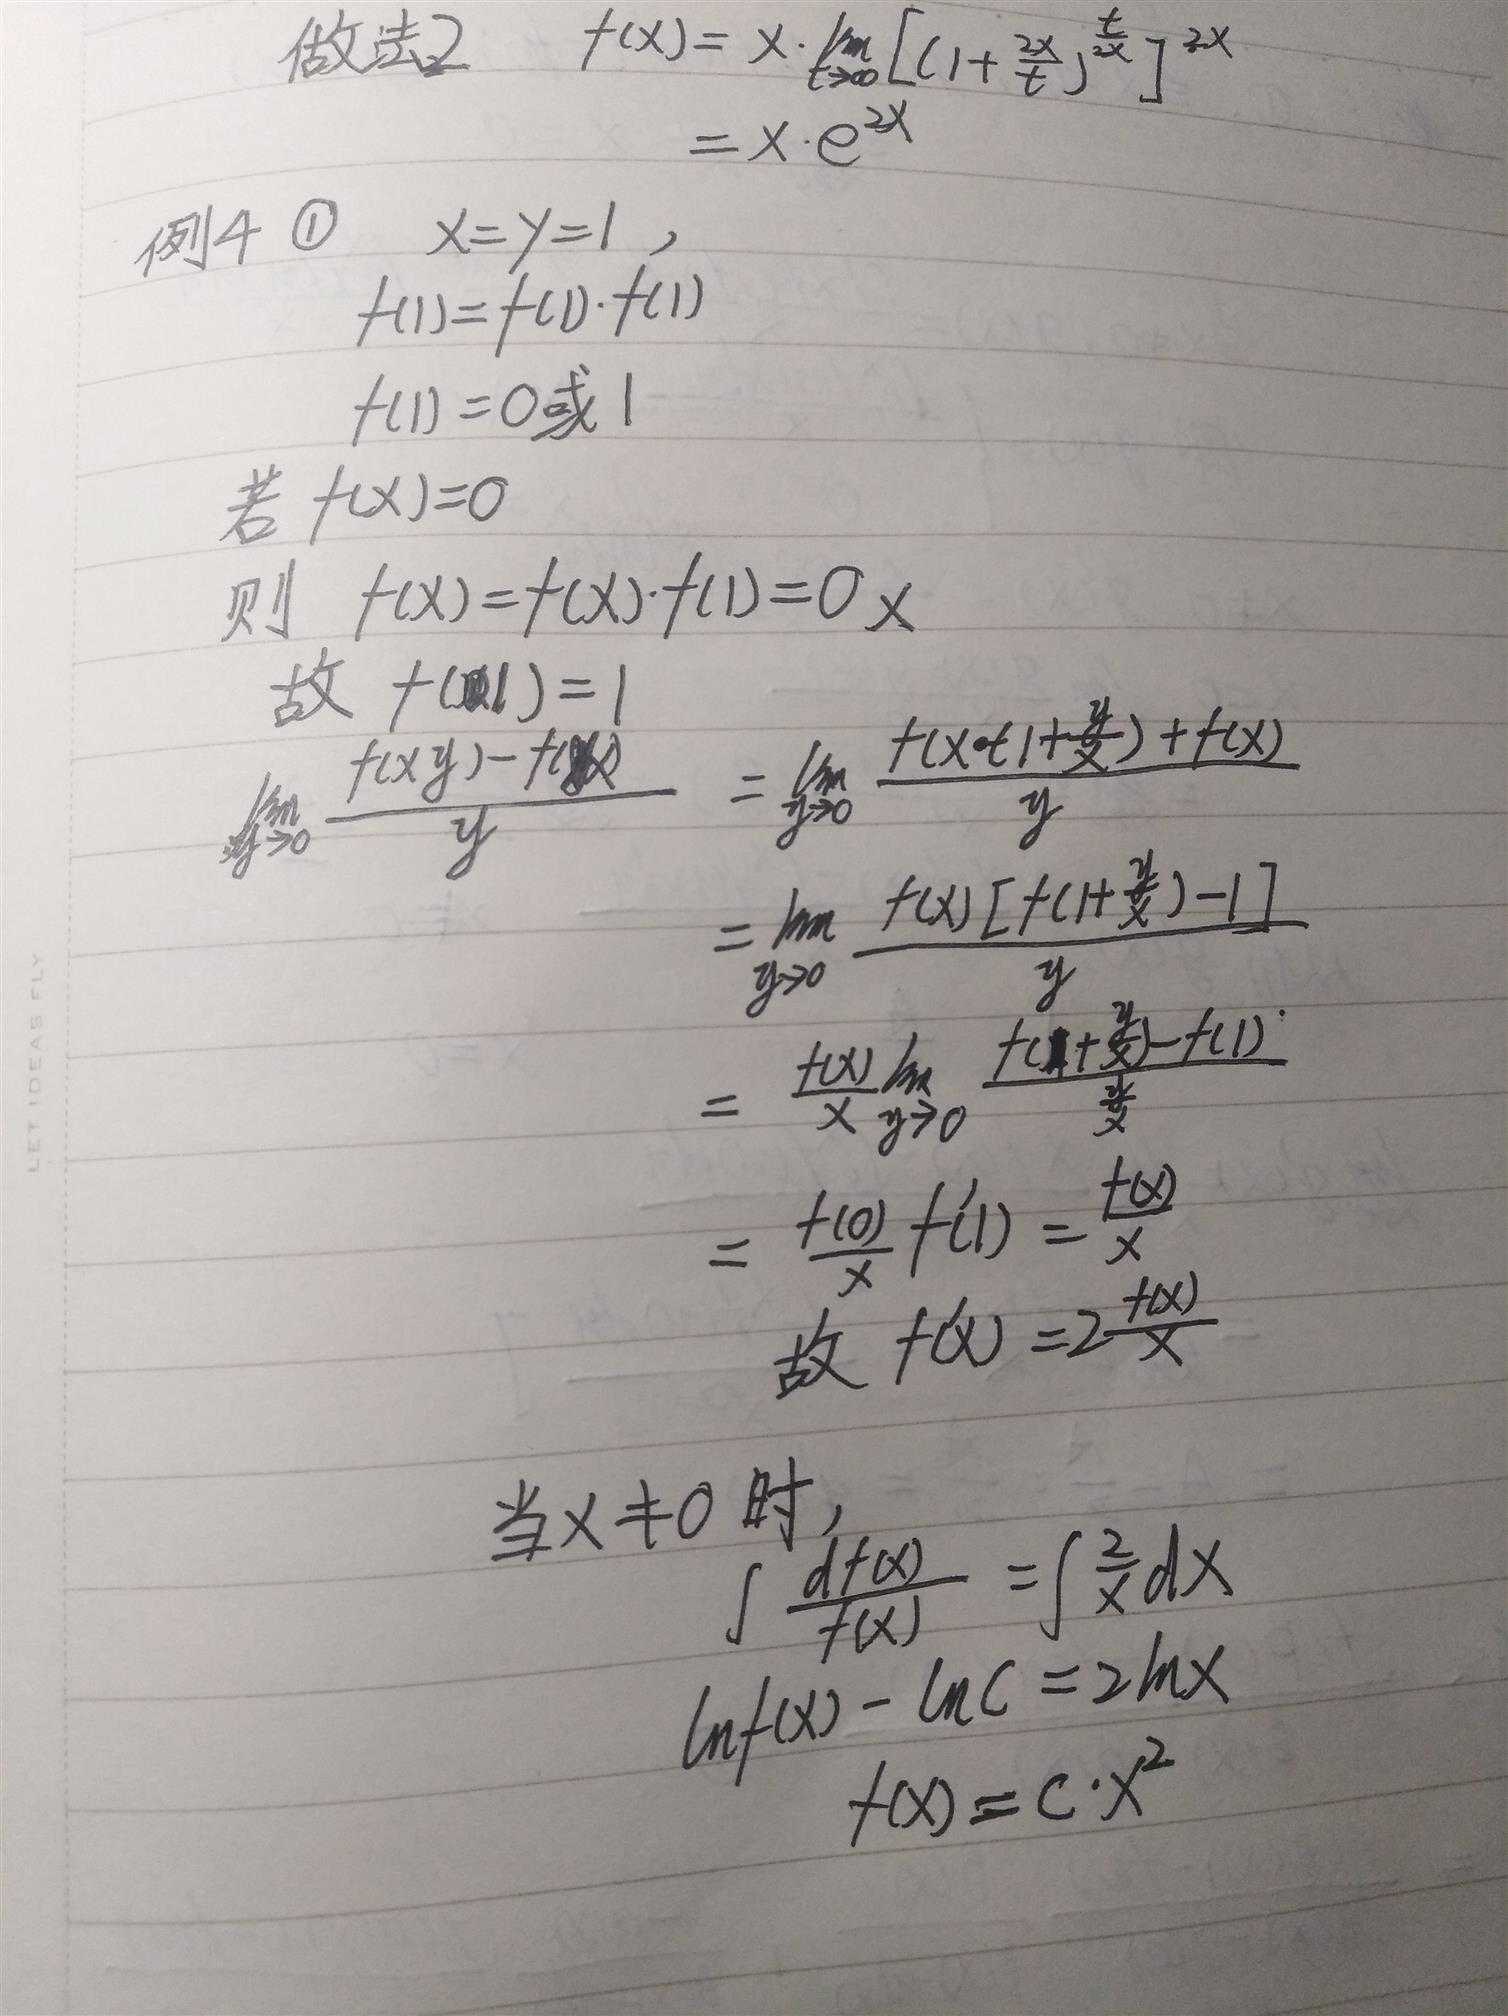 做法2 f(x) = x·lim t→∞ [(1+2x/t)^(t/2x)]^2x
= x·e^2x
例4 ① x=y=1,
f(1)=f(1)·f(1)
f(1)=0或1
若 f(x)=0
则 f(x)=f(x)·f(1)=0 ×
故 f(1)=1
lim y→0 (f(xy)-f(x))/y = lim y→0 (f(x·(1+y/x)+f(x))/y
= lim y→0 f(x)[f(1+y/x)-1]/y
= f(x)/x lim y→0 (f(1+y/x)-f(1))/(y/x)
= f(0)/x f'(1) = f(x)/x
故 f'(x) = 2 f(x)/x
当x≠0时,
∫ df(x)/f(x) = ∫ 2/x dx
lnf(x) - lnC = 2lnx
f(x) = C·x²
LET IDEAS FLY